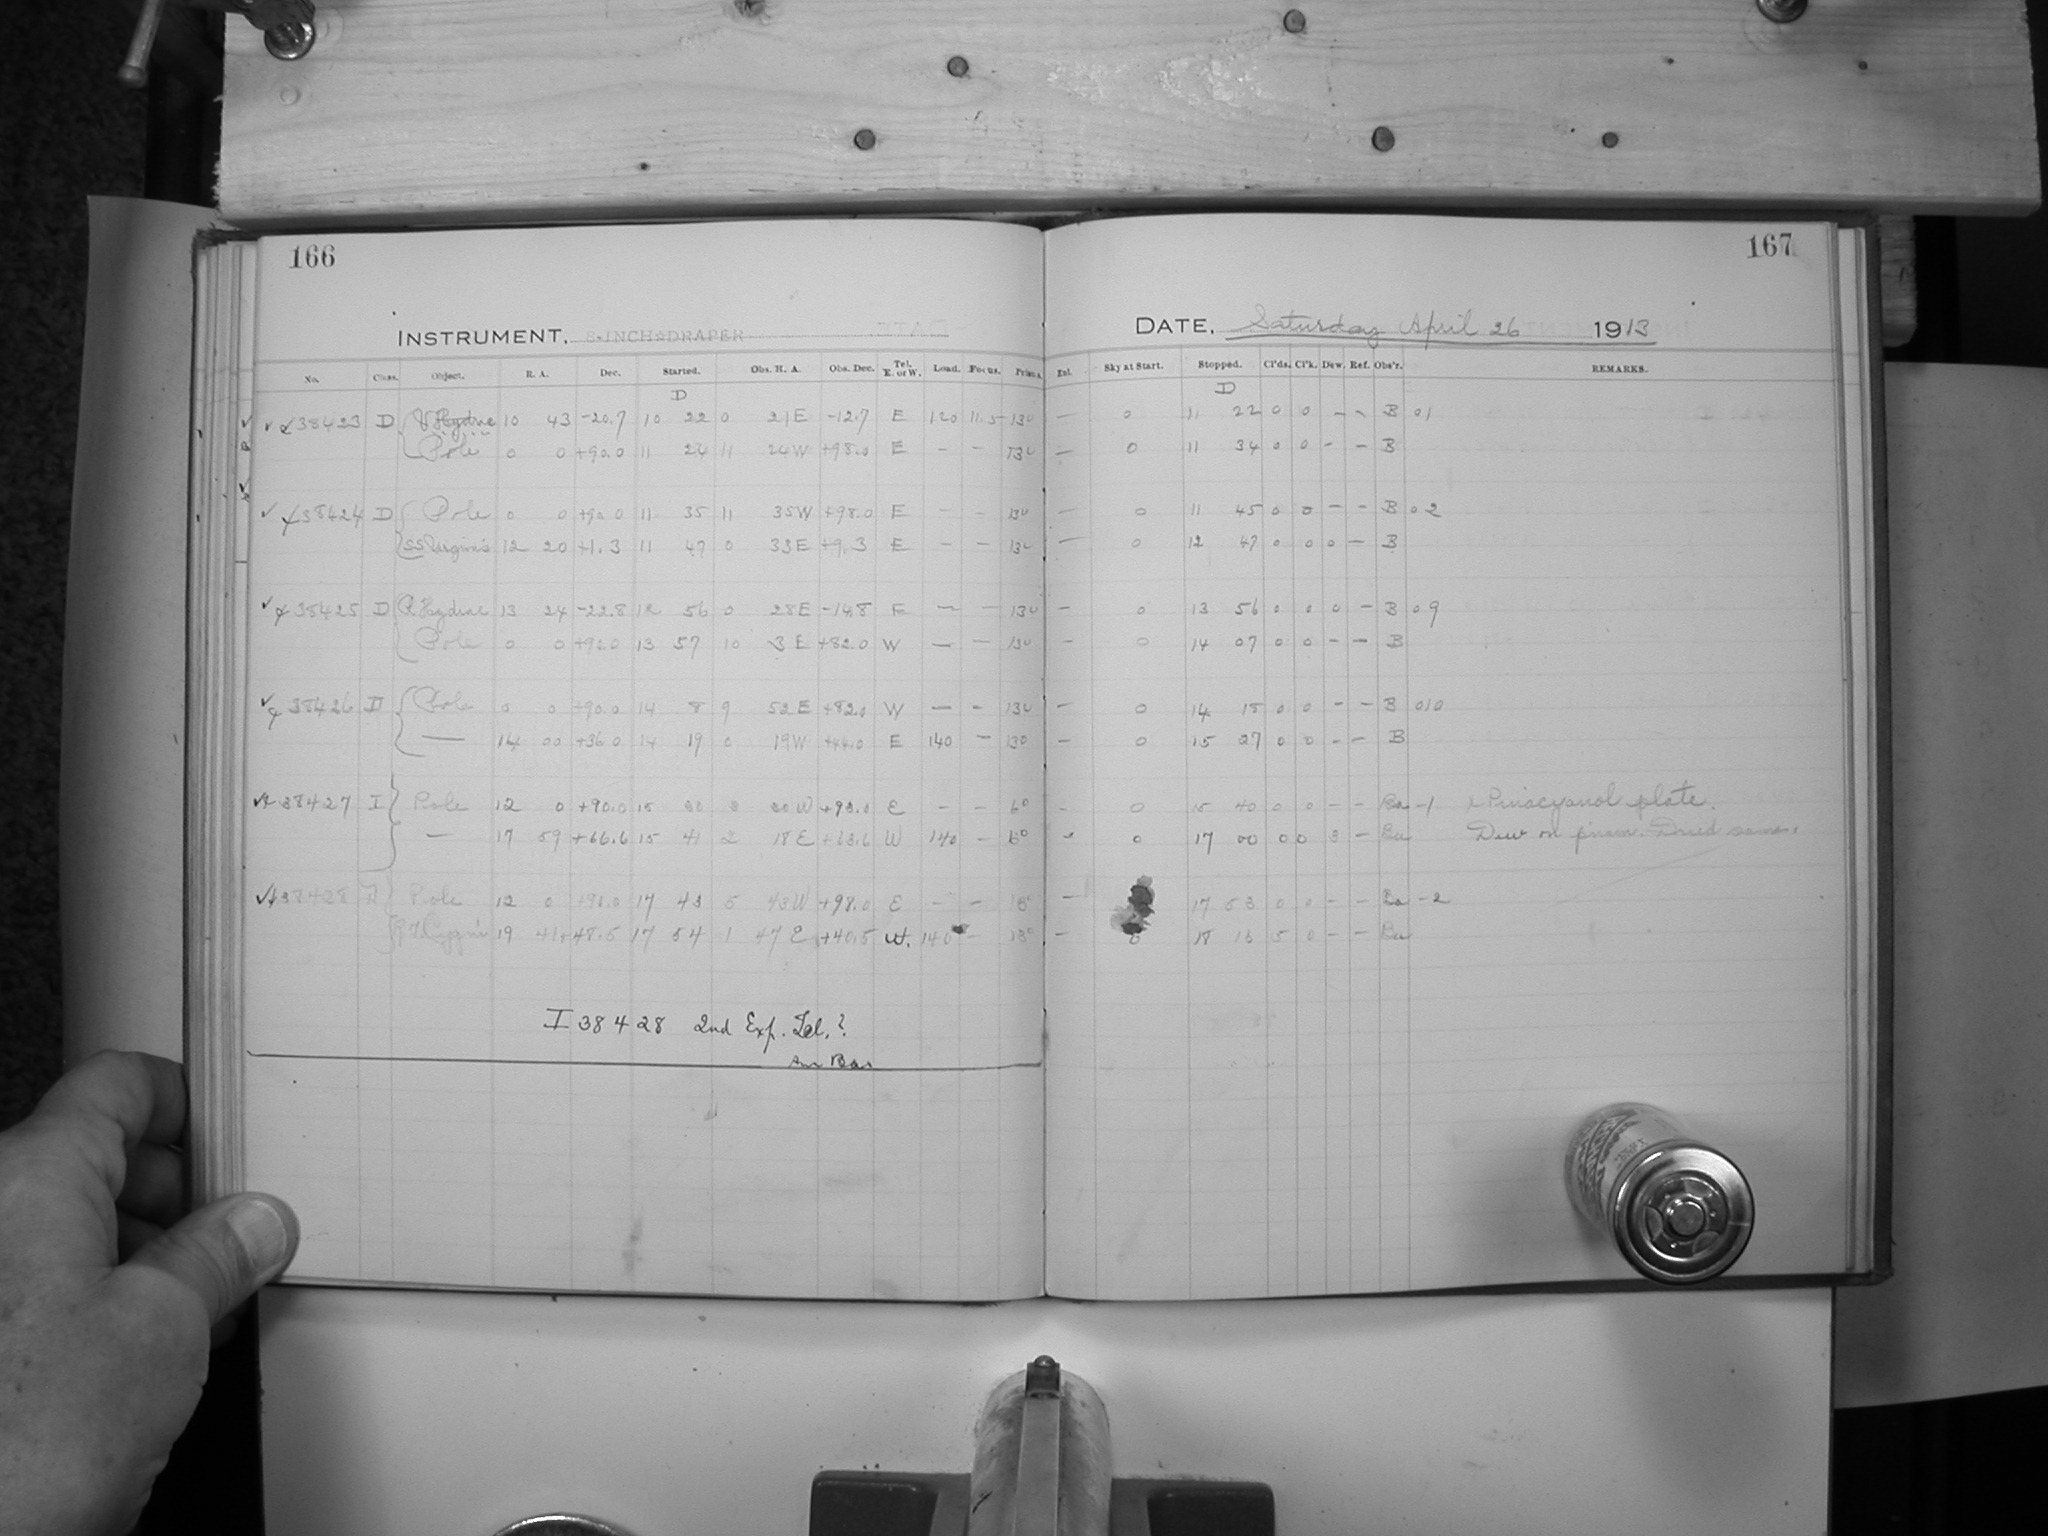 166
167
INSTRUMENT. 8-INCH DRAPER
DATE. Saturday April 26 1913
No. Class. Object. R. A. Dec. Started. Obs. H. A. Obs. Dec. Tel. E. or W. Load. Focus. Prism. Exl. Sky at Start. Stopped. Cl'ds. Cl'k. Dew. Ref. Obs'r. REMARKS.
D D
38423 D Hydrae 10 43 -20.7 10 22 0 21E -12.7 E 120 11.5 130 — 0 11 22 0 0 - - B 01
Pole 0 0 +90.0 11 24 11 24W +98.0 E - - 130 — 0 11 34 0 0 - - B
38424 D Pole 0 0 +90.0 11 35 11 35W +98.0 E - - 130 — 0 11 45 0 0 - - B 02
SS Virginis 12 20 +1.3 11 47 0 33E +9.3 E - - 130 — 0 12 47 0 0 0 - B
38425 D R Hydrae 13 24 -22.8 12 56 0 28E -14.8 E — - 130 - 0 13 56 0 0 0 - B 09
Pole 0 0 +90.0 13 57 10 3E +82.0 W — - 130 - 0 14 07 0 0 - - B
38426 D Pole 0 0 +90.0 14 8 9 52E +82.0 W — - 130 - 0 14 18 0 0 - - B 010
— 14 00 +36.0 14 19 0 19W +44.0 E 140 - 130 - 0 15 27 0 0 - - B
38427 I Pole 12 0 +90.0 15 30 3 30W +98.0 E - - 6° - 0 15 40 0 0 - - Ba -1 x Pinacyanol plate.
— 17 59 +66.6 15 41 2 18E W 140 - 6° 0 17 00 0 0 3 - Ba Dew on prism. Dried same.
38428 Pole 12 0 +90.0 17 43 5 43W +98.0 E - - — 17 53 0 0 - - Ba -2
Cygni 19 41 +48.5 17 54 1 47E +40.5 W. 140 - — 0 18 16 5 0 - - Ba
I 38428 2nd Exp. Tel.?